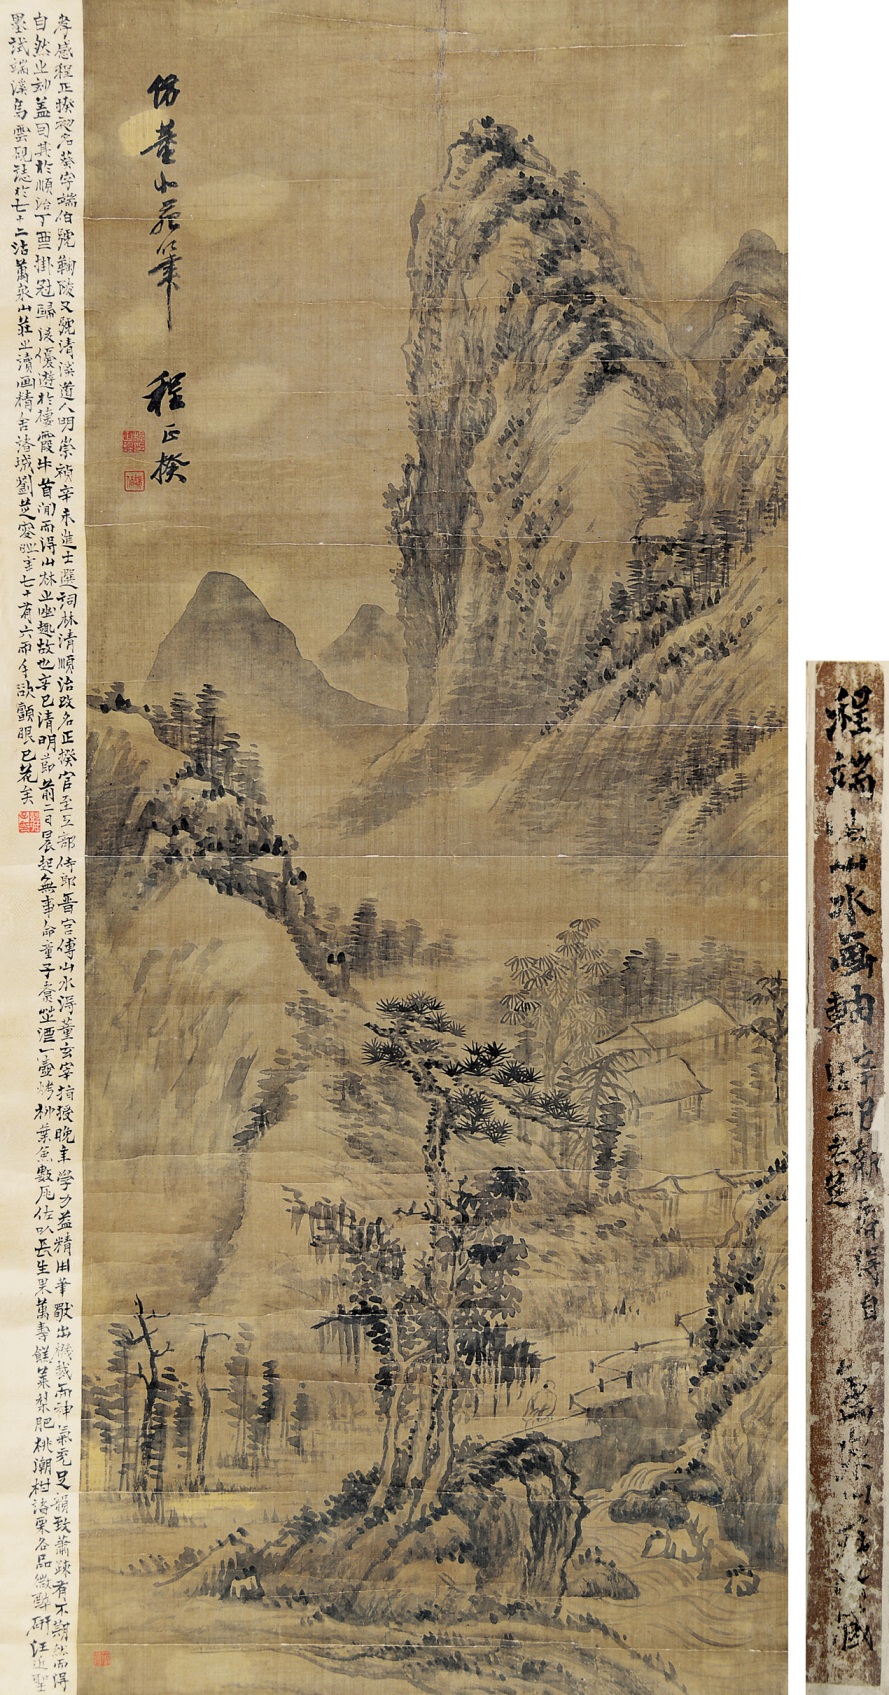 仿董北苑筆
程正揆
孝感程正揆初名葵字端伯號鞠陵又號清溪道人明崇禎辛未進士選詞林清順治改名正揆官至工部侍郎晉宮傅山水得董玄宰指授晚年學力益精用筆獸出機越而神氣充足韻致蕭疎有不期然而得
自然之妙蓋因其於順治丁酉掛冠歸後優遊於棲霞牛首間而得山林之幽趣故也辛巳清明節前二日晨起無事命童子煮酒一壺烤柳葉魚數尾佐以長生果萬壽糕萊梨肥桃潮柑清栗各品微醉研汪近聖
墨試端溪烏雲硯誌於七十二沽蕭泉山莊之讀画精舍渚城劉芝叟時年七十有六而手欲顫眼已花矣
程端山水画軸
辛巳新春得自